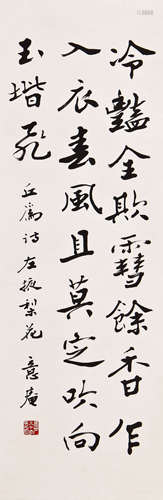 冷豔全欺雪餘香乍
入衣春風且莫定吹向
玉堦飛
丘為詩左掖梨花